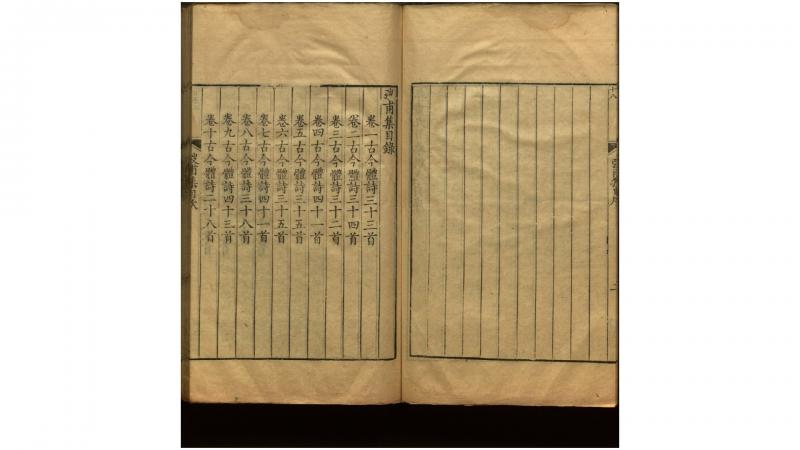 甫集目錄
卷一古今體詩三十三首
卷二古今體詩三十四首
卷三古今體詩三十二首
卷四古今體詩四十一首
卷五古今體詩三十五首
卷六古今體詩三十五首
卷七古今體詩四十一首
卷八古今體詩三十八首
卷九古今體詩四十三首
卷十古今體詩二十八首